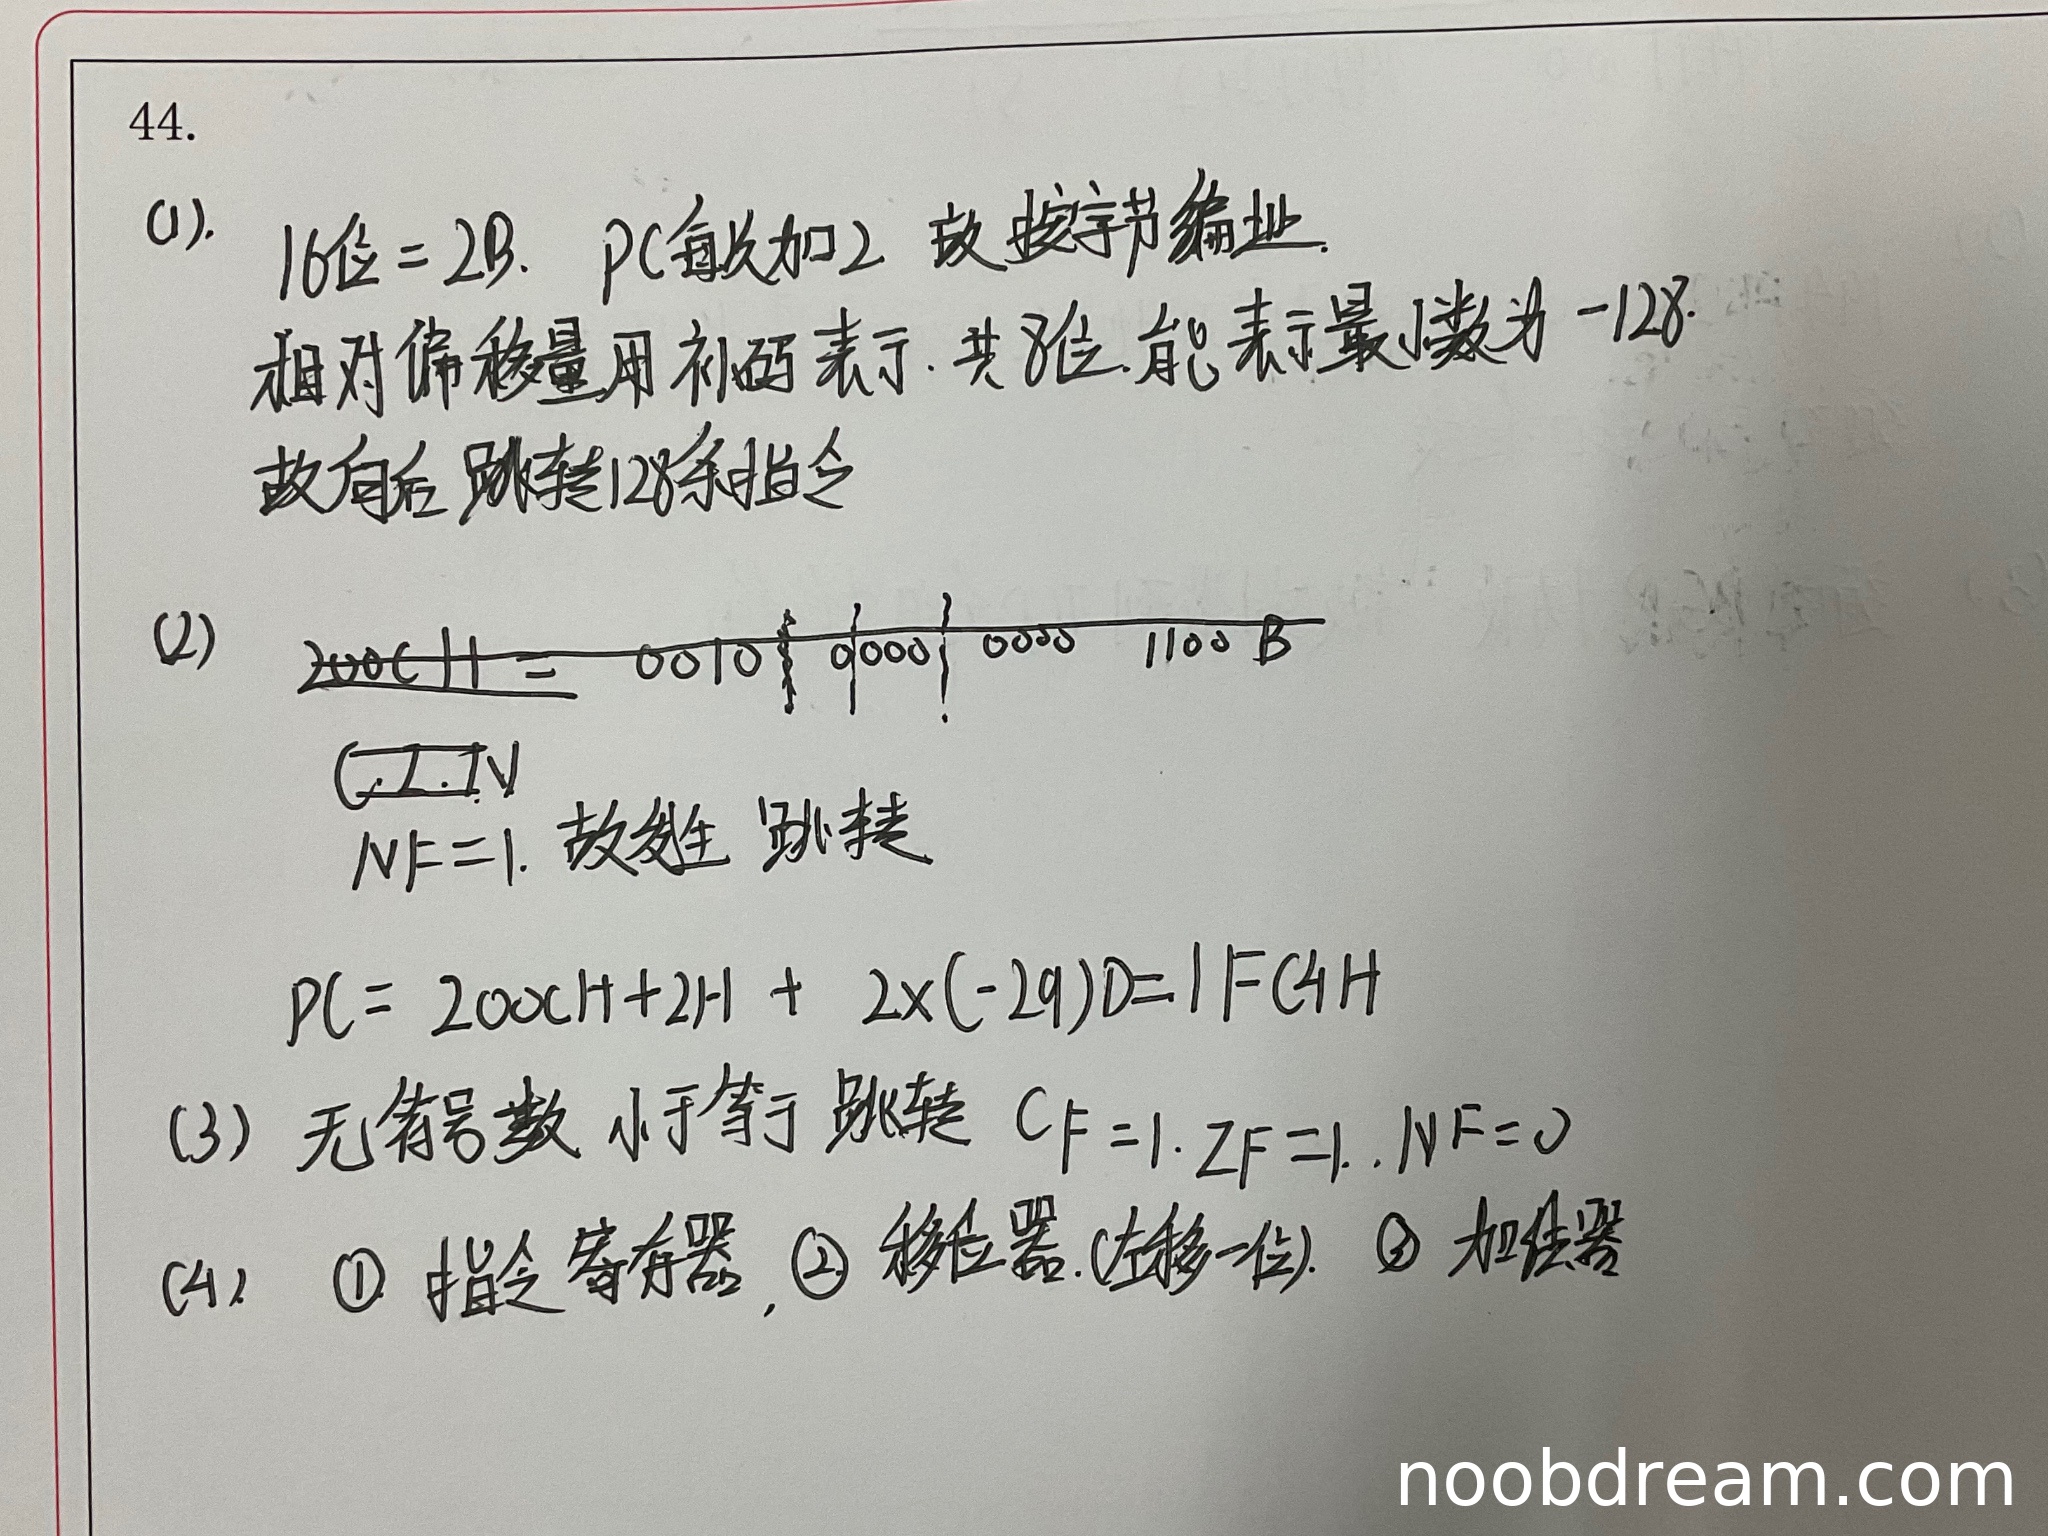 44.
(1). 16位=2B. PC每次加2 故按字节编址.
相对偏移量用补码表示.共8位.能表示最小数为-128.
故向后跳转128条指令
(2) 200CH = 0010 0000 0000 1100 B
C.Z.N
NF=1. 故发生跳转
PC= 200CH+2H + 2×(-29)D=1FC4H
(3) 无符号数 小于等于 跳转 CF=1. ZF=1. . NF=0
(4) ① 指令寄存器, ② 移位器.(左移一位). ③ 加法器
noobdream.com